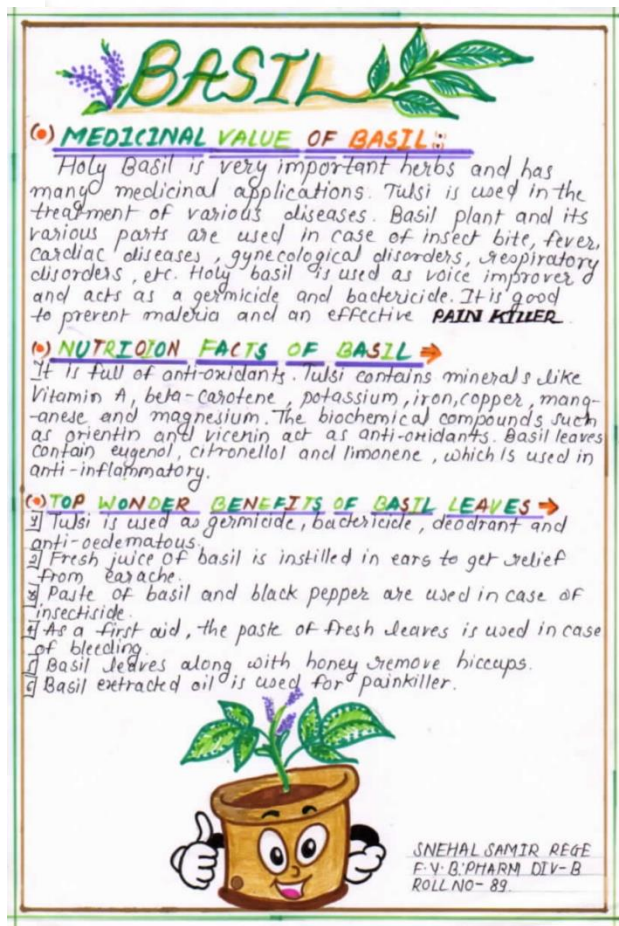 BASIL
MEDICINAL VALUE OF BASIL:
Holy Basil is very important herbs and has
many medicinal applications. Tulsi is used in the
treatment of various diseases. Basil plant and its
various parts are used in case of insect bite, fever,
cardiac diseases, gynecological disorders, respiratory
disorders, etc. Holy basil is used as voice improver
and acts as a germicide and bactericide. It is good
to prevent maleria and an effective PAIN KILLER
NUTRIOION FACTS OF BASIL
It is full of anti-oxidants. Tulsi contains minerals like
Vitamin A, beta-carotene, potassium, iron, copper, mang-
-anese and magnesium. The biochemical compounds such
as orientin and vicenin act as anti-oxidants. Basil leaves
contain eugenol, citronellol and limonene, which is used in
anti-inflammatory.
TOP WONDER BENEFITS OF BASIL LEAVES
Tulsi is used as germicide, bactericide, deodrant and
anti-oedematous.
Fresh juice of basil is instilled in ears to get relief
from earache.
Paste of basil and black pepper are used in case of
insectiside.
As a first aid, the paste of fresh leaves is used in case
of bleeding.
Basil leaves along with honey remove hiccups.
Basil extracted oil is used for painkiller.
SNEHAL SAMIR REGE
F.Y.B.PHARM DIV-B
ROLL NO- 89